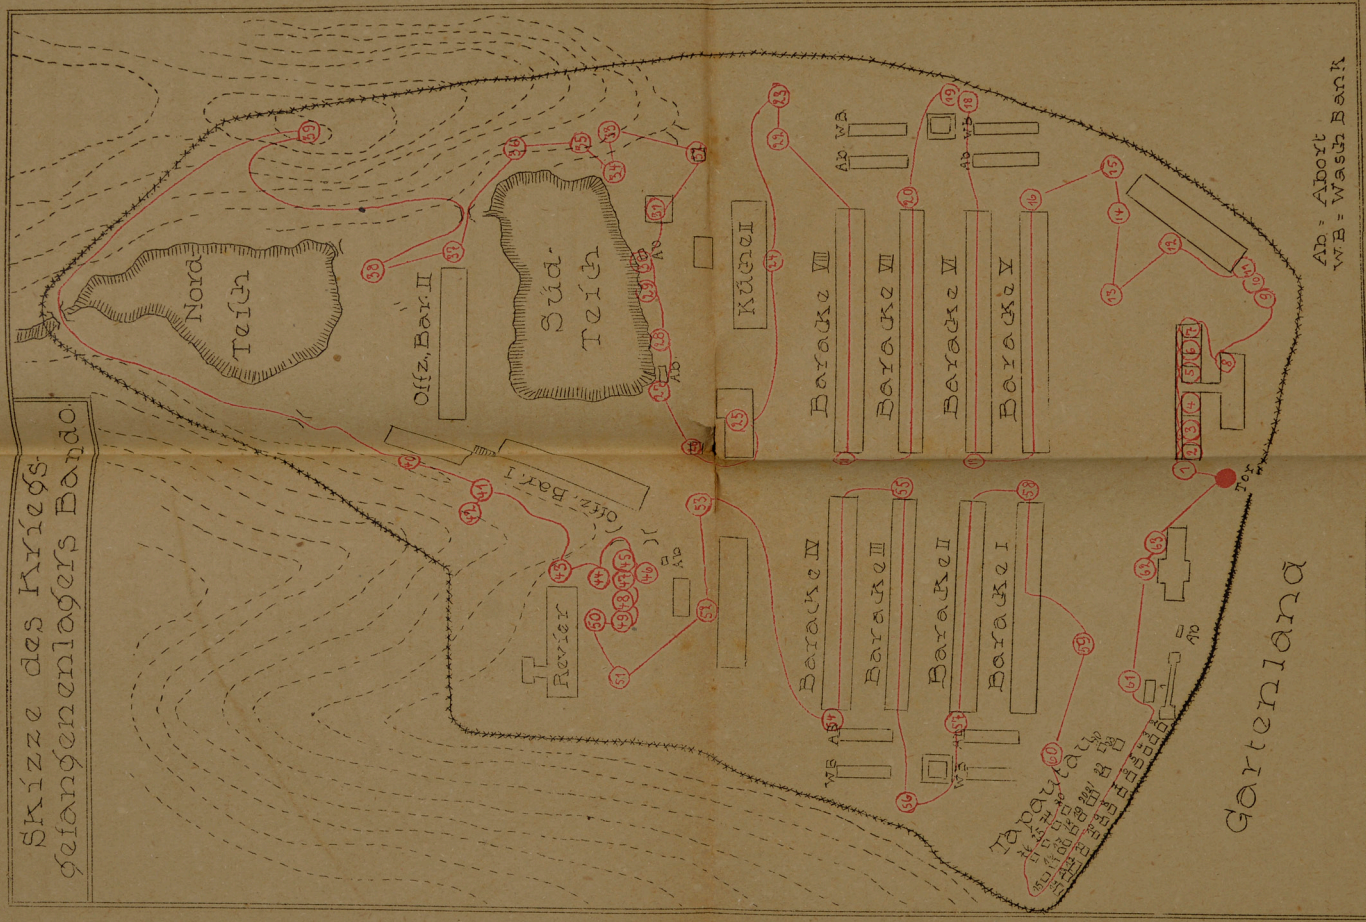 Skizze des Kriegs-
gefangenenlagers Bando.
Nord-
Teich
Süd-
Teich
Offz. Bar. II
Offz. Bar. I
Revier
Küche II
Baracke VIII
Baracke VII
Baracke VI
Baracke V
Baracke IV
Baracke III
Baracke II
Baracke I
Ab.
WB.
Ab
WB
Ab
Ab.
Ab
WB
Ab
WB
Ab
Tor
Tapautau
Gartenland
Ab. = Abort
W.B = Wasch Bank
1
2
3
4
5
6
7
8
9
10
11
12
13
14
15
16
18
19
20
22
23
24
25
27
28
29
31
33
34
35
36
37
38
39
40
41
42
43
44
45
46
47
48
49
50
51
52
53
54
55
56
57
58
59
60
61
62
63